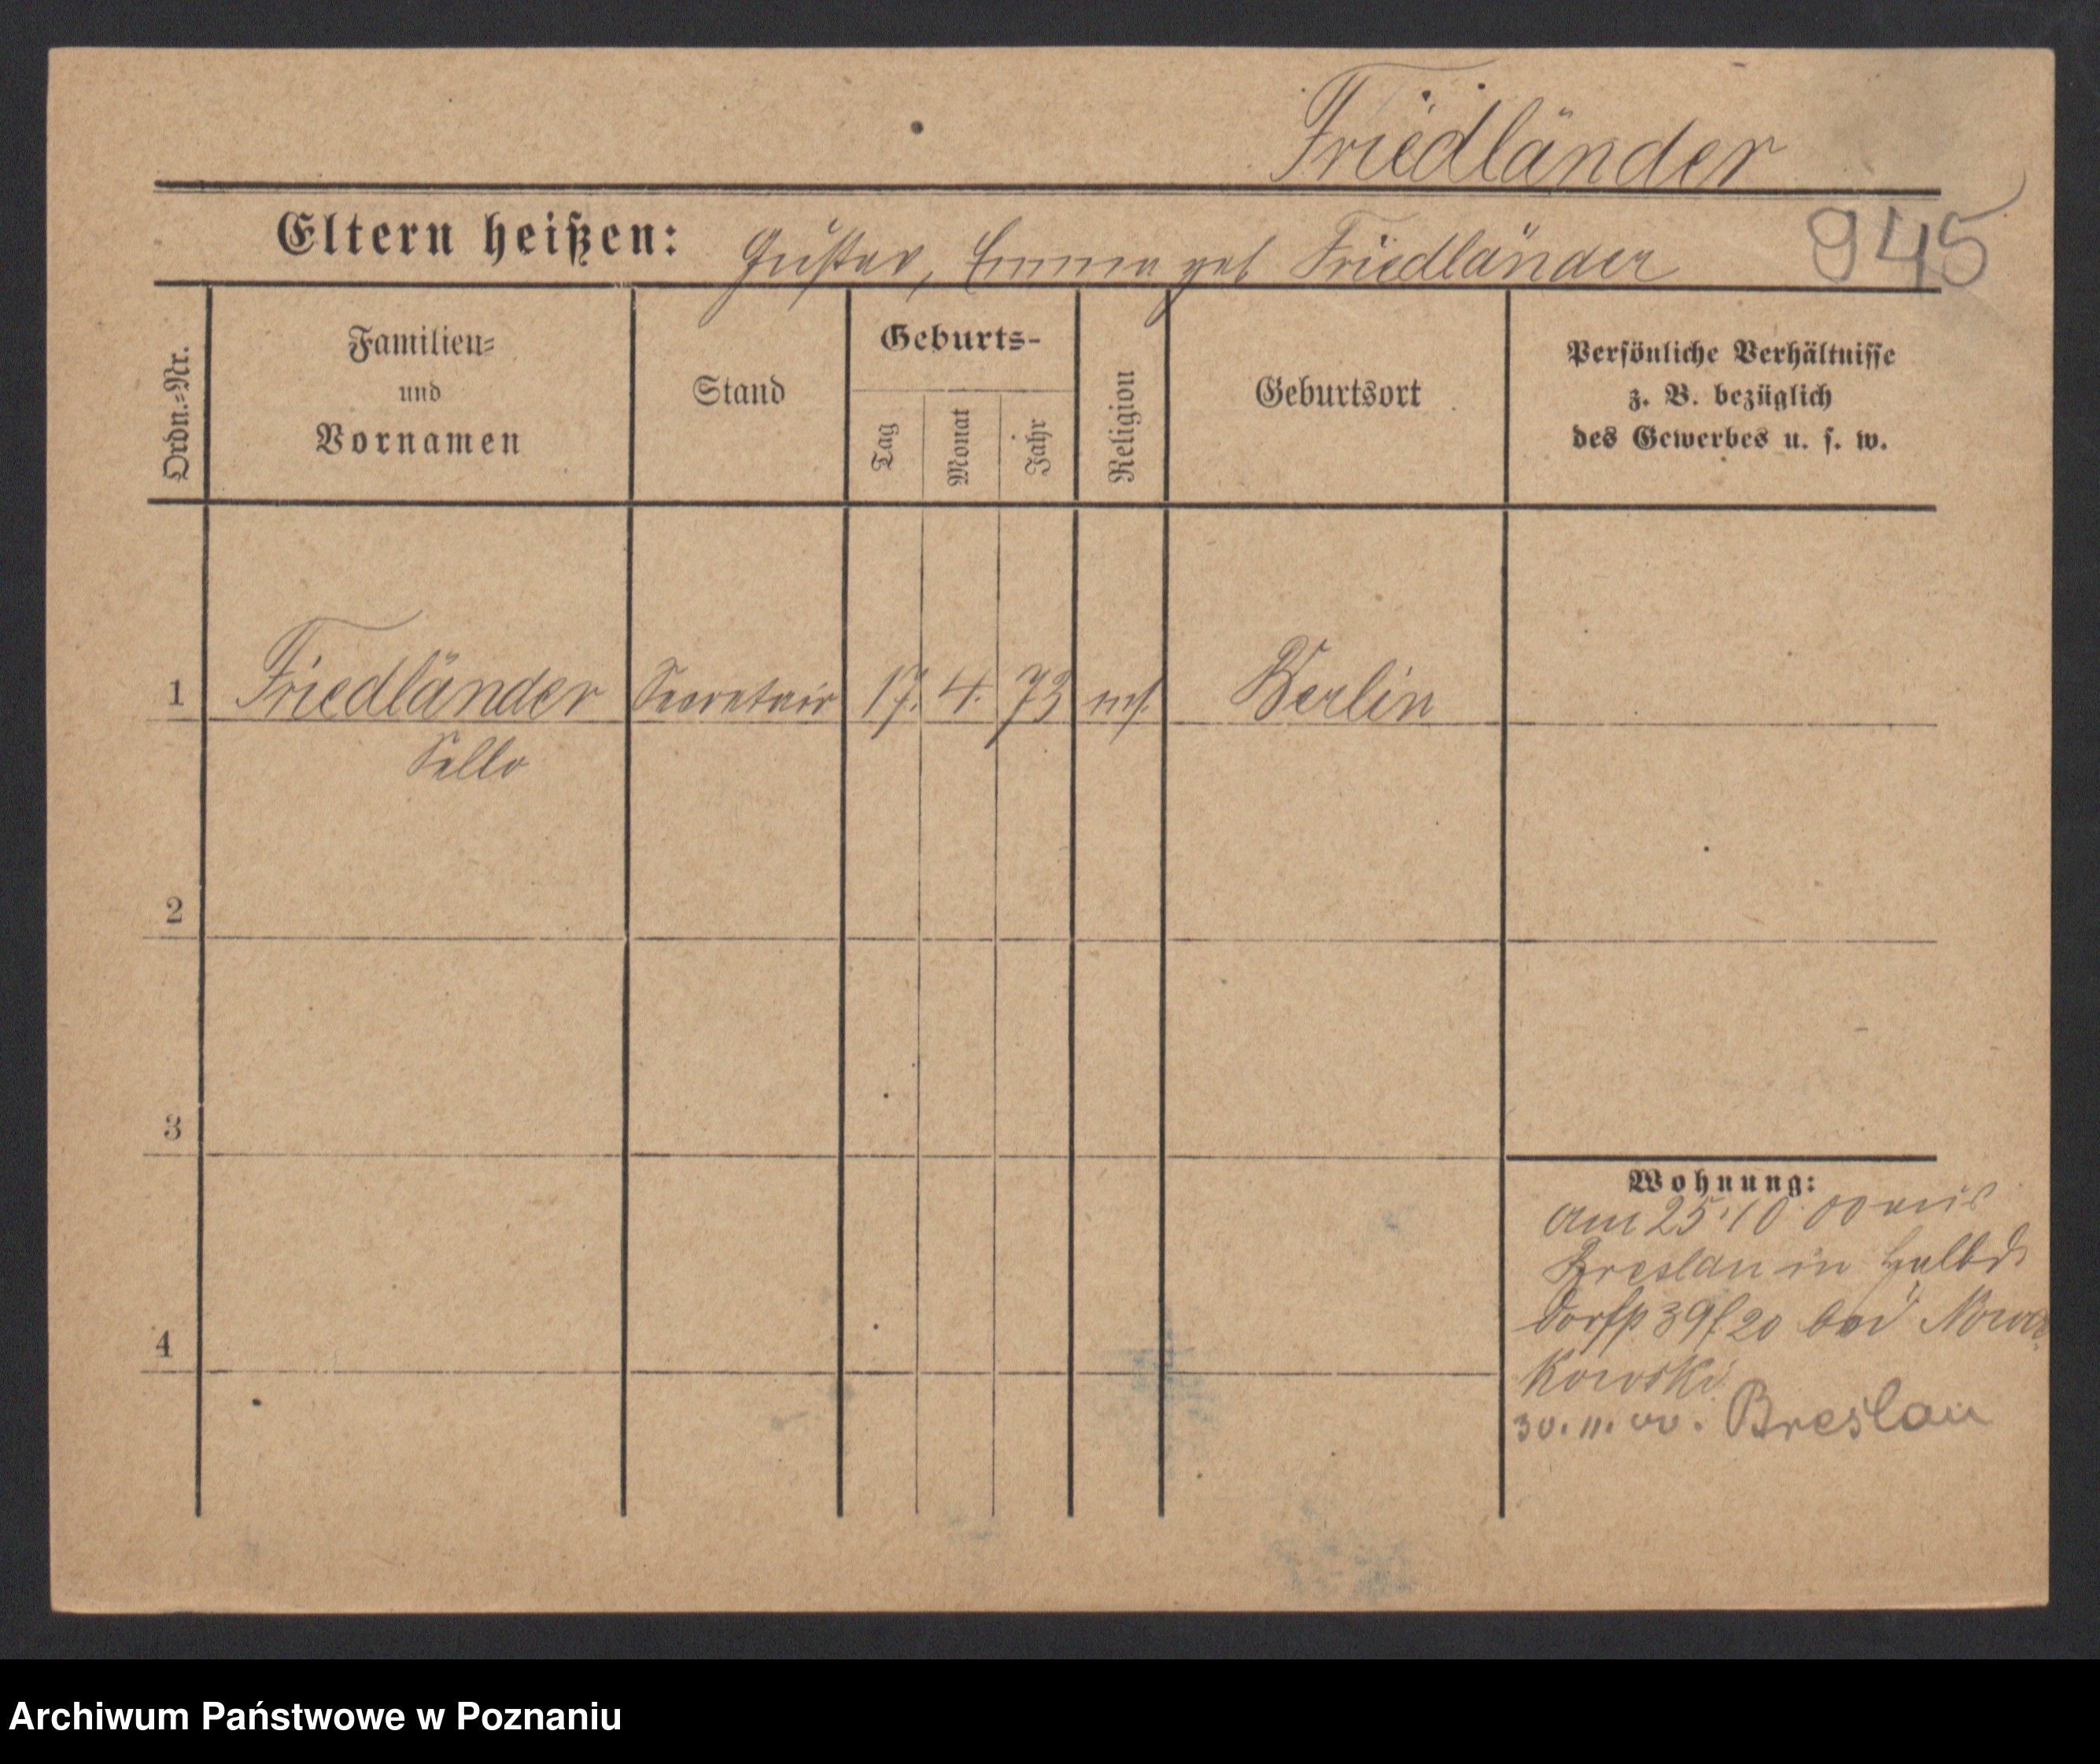 Friedländer
Eltern heißen: Gustav, Emma geb Friedländer 945
Ordn.=Nr.
Familien=
und
Vornamen
Stand
Geburts-
Tag
Monat
Jahr
Religion
Geburtsort
Persönliche Verhältnisse
z. B. bezüglich
des Gewerbes u. s. w.
1 Friedländer Secretair 17. 4. 73 Berlin
Sello
2
3
4
Wohnung:
am 25.10.00 aus
Breslau in Halbd
dorfp 39/20 bei Nowa
kowski
30.11.00. Breslau
Archiwum Państwowe w Poznaniu